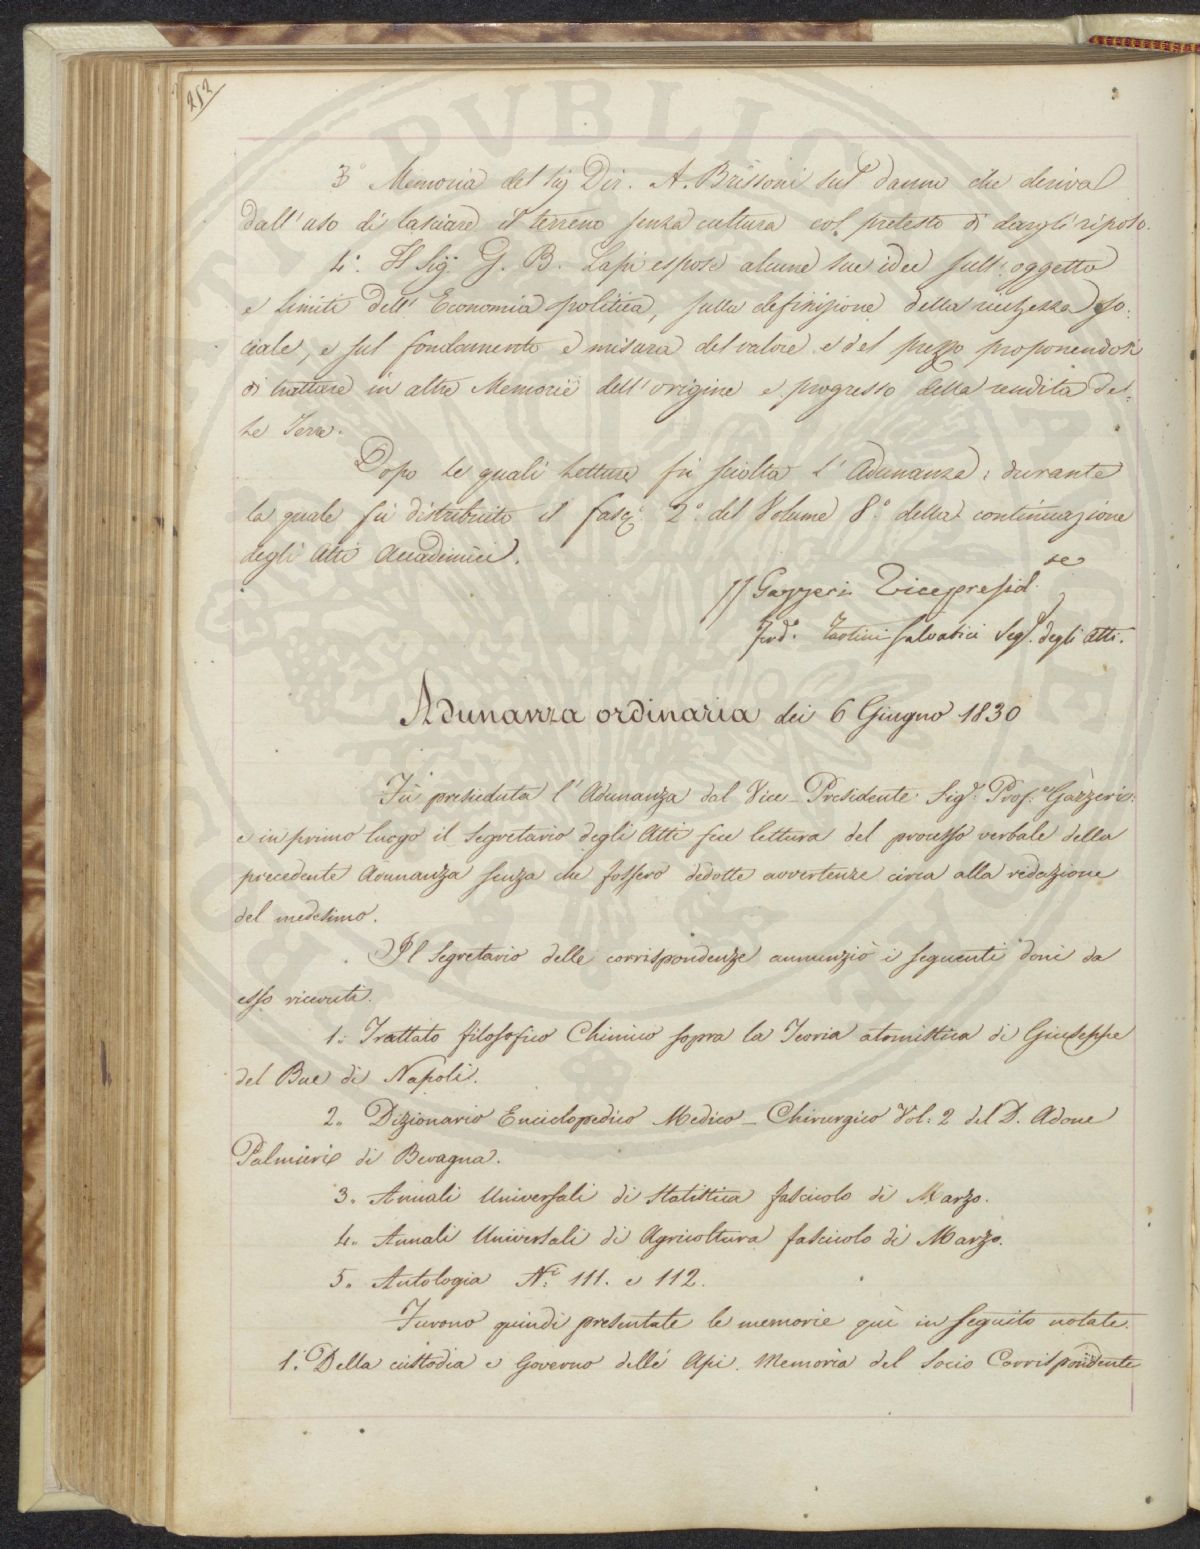 3.° Memoria del Sig. Dir. A. Brissoni sul danno che deriva
dall'uso di lasciare il terreno senza cultura col pretesto di dargli riposo.
4.° Il Sig. G. B. Lapi espose alcune sue idee sull'oggetto
e limiti dell'Economia politica, sulla definizione della ricchezza so-
ciale, e sul fondamento e misura del valore e del prezzo proponendosi
di trattare in altre Memorie dell'origine e progresso della rendita del-
le Terre.
Dopo le quali letture fù sciolta l'Adunanza; durante
la quale fù distribuito il fasc.° 2.° del Volume 8.° della continuazione
degli Atti Accademici.
Gazzeri Vicepresid.te
Ferd.° Tartini Salvatici Seg. degli Atti.
Adunanza ordinaria dei 6 Giugno 1830
Fù presieduta l'Adunanza dal Vice-Presidente Sig.r Prof.e Gazzeri:
e in primo luogo il Segretario degli Atti fece lettura del processo verbale della
precedente Adunanza senza che fossero dedotte avvertenze circa alla redazione
del medesimo.
Il Segretario delle corrispondenze annunziò i seguenti doni da
esso ricevuti.
1.° Trattato filosofico Chimico sopra la Teoria atomistica di Giuseppe
del Bue di Napoli.
2.° Dizionario Enciclopedico Medico-Chirurgico Vol: 2 del D. Adone
Palmieri di Bevagna.
3.° Annali Universali di Statistica fascicolo di Marzo.
4.° Annali Universali di Agricoltura fascicolo di Marzo.
5.° Antologia N.i 111. e 112.
Furono quindi presentate le memorie quì in seguito notate.
1.° Della custodia e Governo delle Api. Memoria del Socio Corrispondente